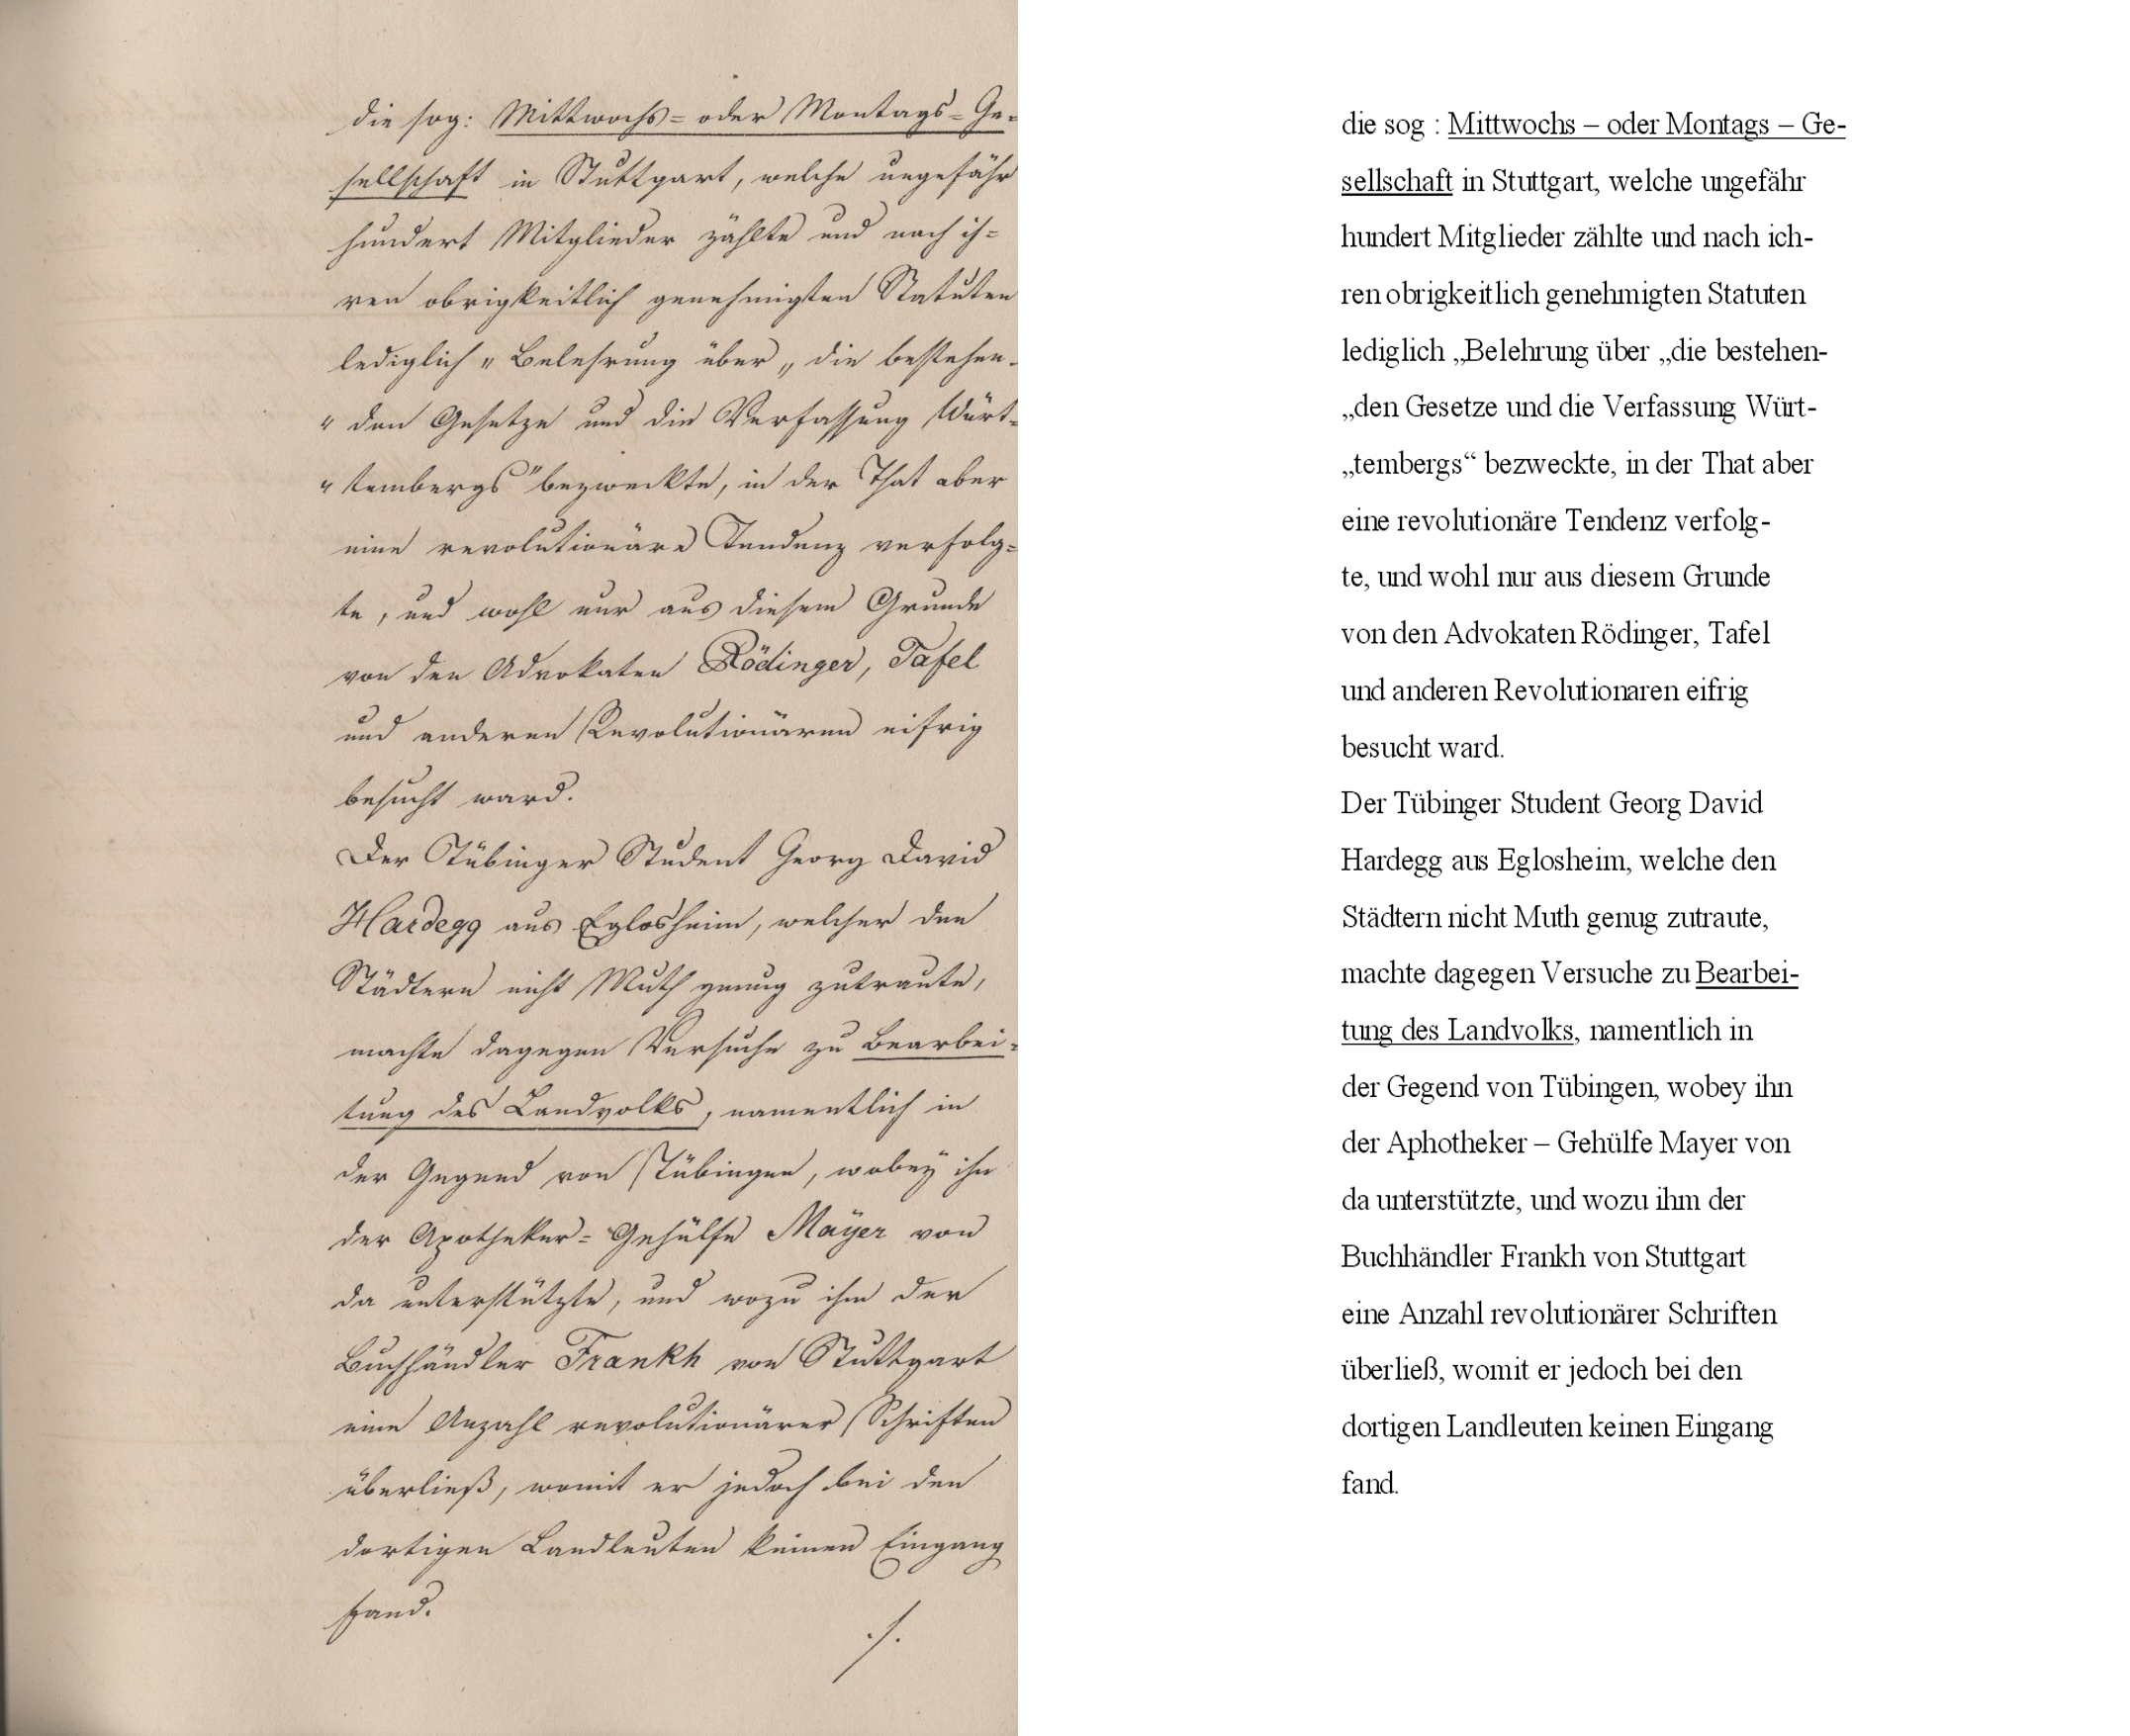 die sog: Mittwochs= oder Montags=Ge-
sellschaft in Stuttgart, welche ungefähr
hundert Mitglieder zählte und nach ih=
ren obrigkeitlich genehmigten Statuten
lediglich „Belehrung über „die bestehen-
„den Gesetze und die Verfassung Würt-
„tembergs" bezweckte, in der That aber
eine revolutionäre Tendenz verfolg=
te, und wohl nur aus diesem Grunde
von den Advokaten Rödinger, Tafel
und anderen Revolutionären eifrig
besucht ward.
Der Tübinger Student Georg David
Hardegg aus Eglosheim, welcher den
Städtern nicht Muth genug zutraute,
machte dagegen Versuche zu Bearbei-
tung des Landvolks, namentlich in
der Gegend von Tübingen, wobeÿ ihn
der Apotheker=Gehülfe Maÿer von
da unterstützte, und wozu ihm der
Buchhändler Frankh von Stuttgart
eine Anzahl revolutionärer Schriften
überließ, womit er jedoch bei den
dortigen Landleuten keinen Eingang
fand.
./.
die sog : Mittwochs – oder Montags – Ge-
sellschaft in Stuttgart, welche ungefähr
hundert Mitglieder zählte und nach ich-
ren obrigkeitlich genehmigten Statuten
lediglich „Belehrung über „die bestehen-
„den Gesetze und die Verfassung Würt-
„tembergs“ bezweckte, in der That aber
eine revolutionäre Tendenz verfolg-
te, und wohl nur aus diesem Grunde
von den Advokaten Rödinger, Tafel
und anderen Revolutionaren eifrig
besucht ward.
Der Tübinger Student Georg David
Hardegg aus Eglosheim, welche den
Städtern nicht Muth genug zutraute,
machte dagegen Versuche zu Bearbei-
tung des Landvolks, namentlich in
der Gegend von Tübingen, wobey ihn
der Aphotheker – Gehülfe Mayer von
da unterstützte, und wozu ihm der
Buchhändler Frankh von Stuttgart
eine Anzahl revolutionärer Schriften
überließ, womit er jedoch bei den
dortigen Landleuten keinen Eingang
fand.